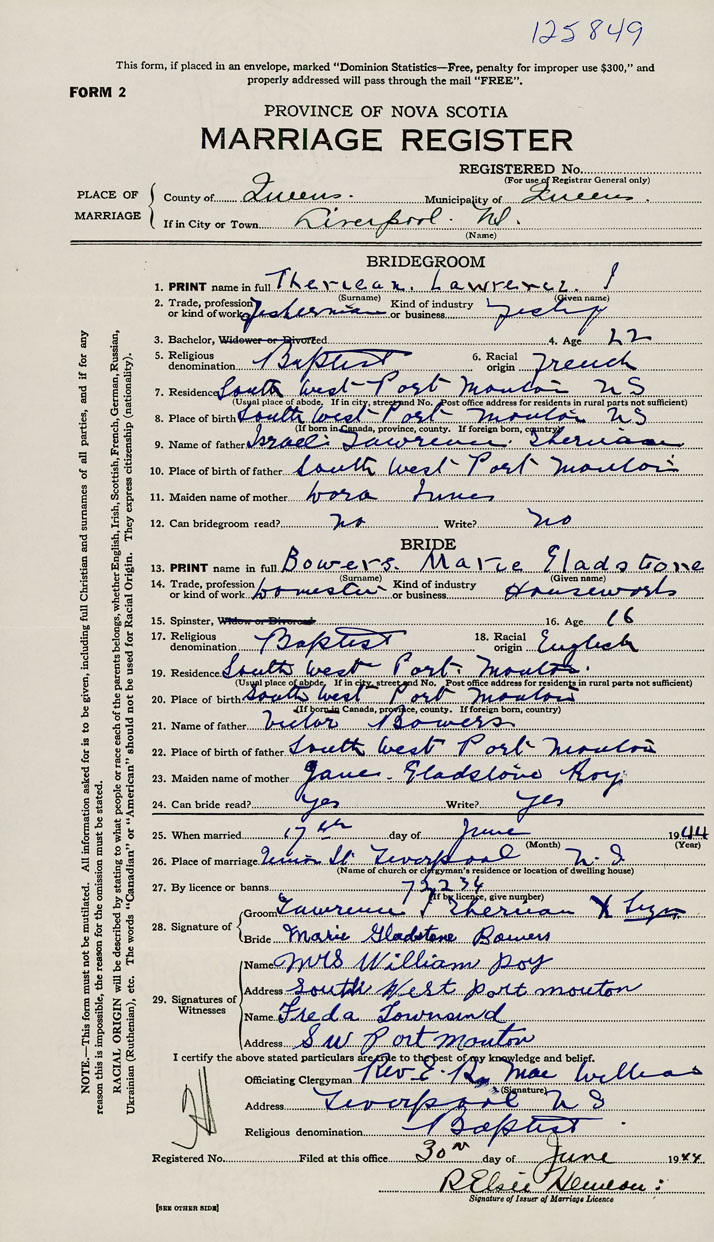 125849
This form, if placed in an envelope, marked "Dominion Statistics—Free, penalty for improper use $300," and
properly addressed will pass through the mail "FREE".
FORM 2
PROVINCE OF NOVA SCOTIA
MARRIAGE REGISTER
REGISTERED No.
(For use of Registrar General only)
PLACE OF MARRIAGE
County of Queens. Municipality of Queens.
If in City or Town Liverpool. NS.
(Name)
BRIDEGROOM
1. PRINT name in full Lawrence. J
(Surname) (Given name)
2. Trade, profession or kind of work Fisherman Kind of industry or business
3. Bachelor, Widower or Divorced 4. Age 22
5. Religious denomination Baptist 6. Racial origin French
7. Residence South West Port Mouton NS
(Usual place of abode. If in city, street and No. Post office address for residents in rural parts not sufficient)
8. Place of birth South West Port Mouton NS
(If born in Canada, province, county. If foreign born, country)
9. Name of father Israel Lawrence
10. Place of birth of father South West Port Mouton
11. Maiden name of mother
12. Can bridegroom read? no Write? no
BRIDE
13. PRINT name in full Bowers. Marie Gladstone
(Surname) (Given name)
14. Trade, profession or kind of work Domestic Kind of industry or business Housework
15. Spinster, Widow or Divorced 16. Age 16
17. Religious denomination Baptist 18. Racial origin English
19. Residence South West Port Mouton.
(Usual place of abode. If in city, street and No. Post office address for residents in rural parts not sufficient)
20. Place of birth South West Port Mouton
(If born in Canada, province, county. If foreign born, country)
21. Name of father Victor Bowers
22. Place of birth of father South West Port Mouton
23. Maiden name of mother Jane Gladstone Roy
24. Can bride read? yes Write? yes
25. When married 17th day of June 1944
(Month) (Year)
26. Place of marriage Union St Liverpool N.S
(Name of church or clergyman's residence or location of dwelling house)
27. By licence or banns 72234
(If by licence, give number)
28. Signature of Groom Lawrence J X
Bride Marie Gladstone Bowers
29. Signatures of Witnesses
Name Mrs William Roy
Address South West Port mouton
Name Freda Townsend
Address S W Port mouton
I certify the above stated particulars are true to the best of my knowledge and belief.
Officiating Clergyman Rev E. R. Mac William
(Signature)
Address Liverpool N S
Religious denomination Baptist
Registered No. Filed at this office 30th day of June 1944
R Elsie
Signature of Issuer of Marriage Licence
[SEE OTHER SIDE]
NOTE.—This form must not be mutilated. All information asked for is to be given, including full Christian and surnames of all parties, and if for any
reason this is impossible, the reason for the omission must be stated.
RACIAL ORIGIN will be described by stating to what people or race each of the parents belongs, whether English, Irish, Scottish, French, German, Russian,
Ukrainian (Ruthenian), etc. The words "Canadian" or "American" should not be used for Racial Origin. They express citizenship (nationality).